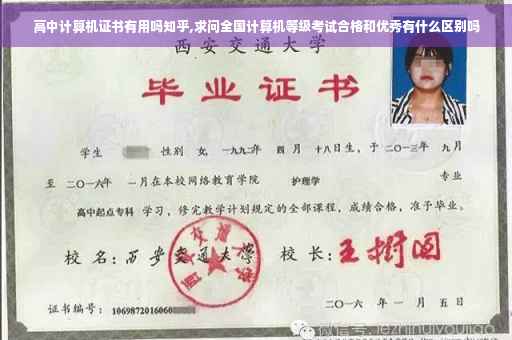 高中计算机证书有用吗知乎,求问全国计算机等级考试合格和优秀有什么区别吗
西安交通大学
毕业证书
学生 性别 女, 一九九二年 四月 十八日生, 于 二〇一三年 九月
至 二〇一六年 一月在本校网络教育学院 护理学 专业
高中起点专科 学习, 修完教学计划规定的全部课程, 成绩合格, 准予毕业。
校名: 西安交通大学 校长: 王树国
证书编号: 1069872016060
二〇一六年 一月 五日
微信号: jezhinuiyoujiao